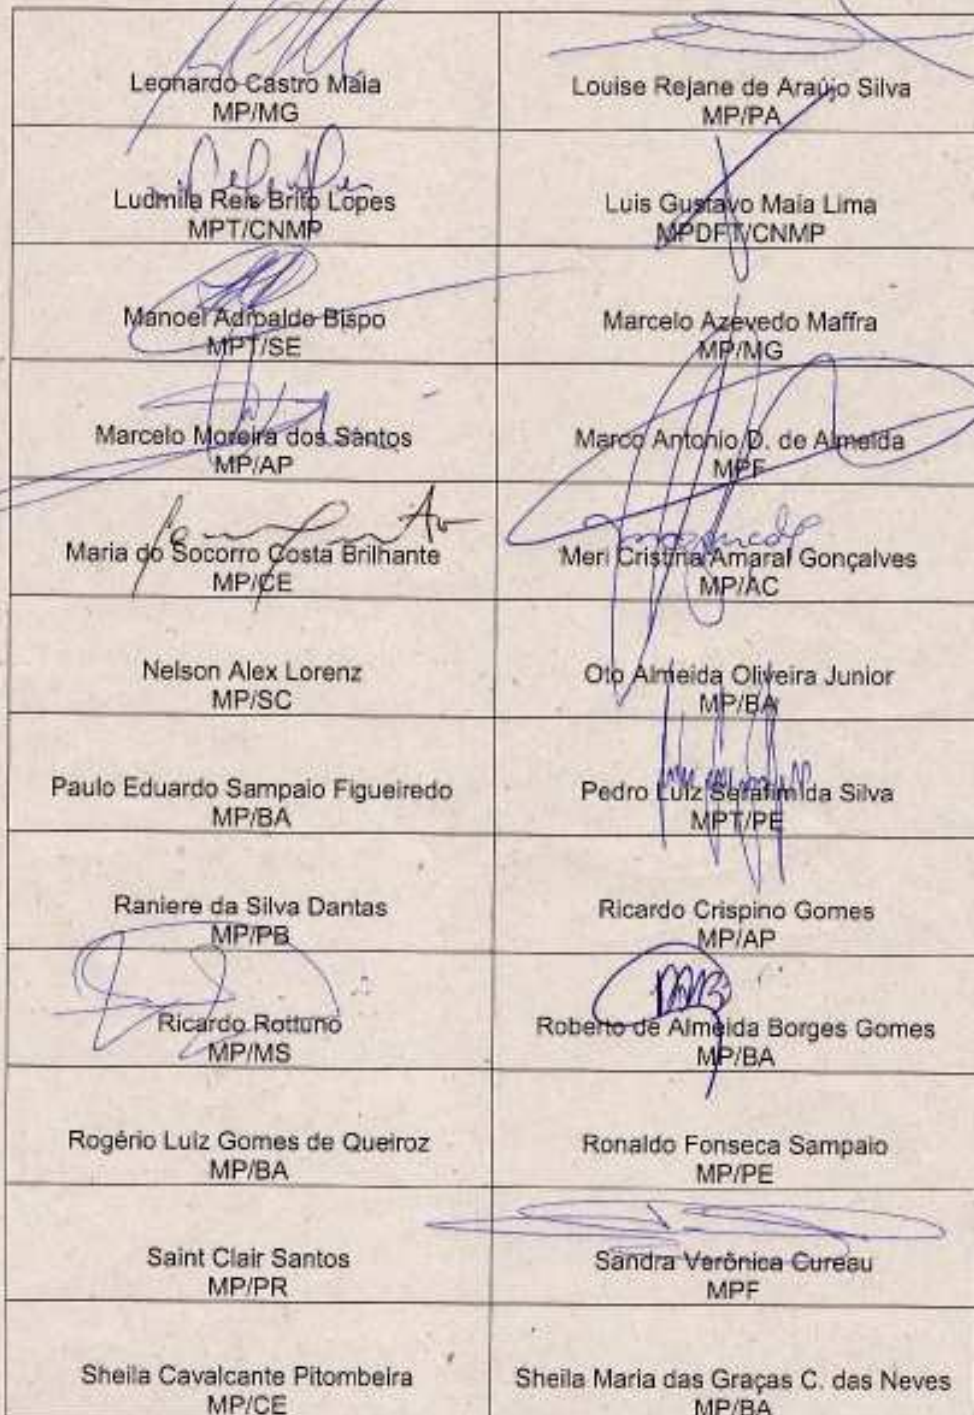 Leonardo Castro Maia
MP/MG
Louise Rejane de Araújo Silva
MP/PA
Ludmila Reis Brito Lopes
MPT/CNMP
Luis Gustavo Maia Lima
MPDFT/CNMP
Manoel Adroaldo Bispo
MPT/SE
Marcelo Azevedo Maffra
MP/MG
Marcelo Moreira dos Santos
MP/AP
Marco Antonio D. de Almeida
MPF
Maria do Socorro Costa Brilhante
MP/CE
Meri Cristina Amaral Gonçalves
MP/AC
Nelson Alex Lorenz
MP/SC
Oto Almeida Oliveira Junior
MP/BA
Paulo Eduardo Sampaio Figueiredo
MP/BA
Pedro Luiz Serafim da Silva
MPT/PE
Raniere da Silva Dantas
MP/PB
Ricardo Crispino Gomes
MP/AP
Ricardo Rottuno
MP/MS
Roberto de Almeida Borges Gomes
MP/BA
Rogério Luiz Gomes de Queiroz
MP/BA
Ronaldo Fonseca Sampaio
MP/PE
Saint Clair Santos
MP/PR
Sandra Verônica Cureau
MPF
Sheila Cavalcante Pitombeira
MP/CE
Sheila Maria das Graças C. das Neves
MP/BA